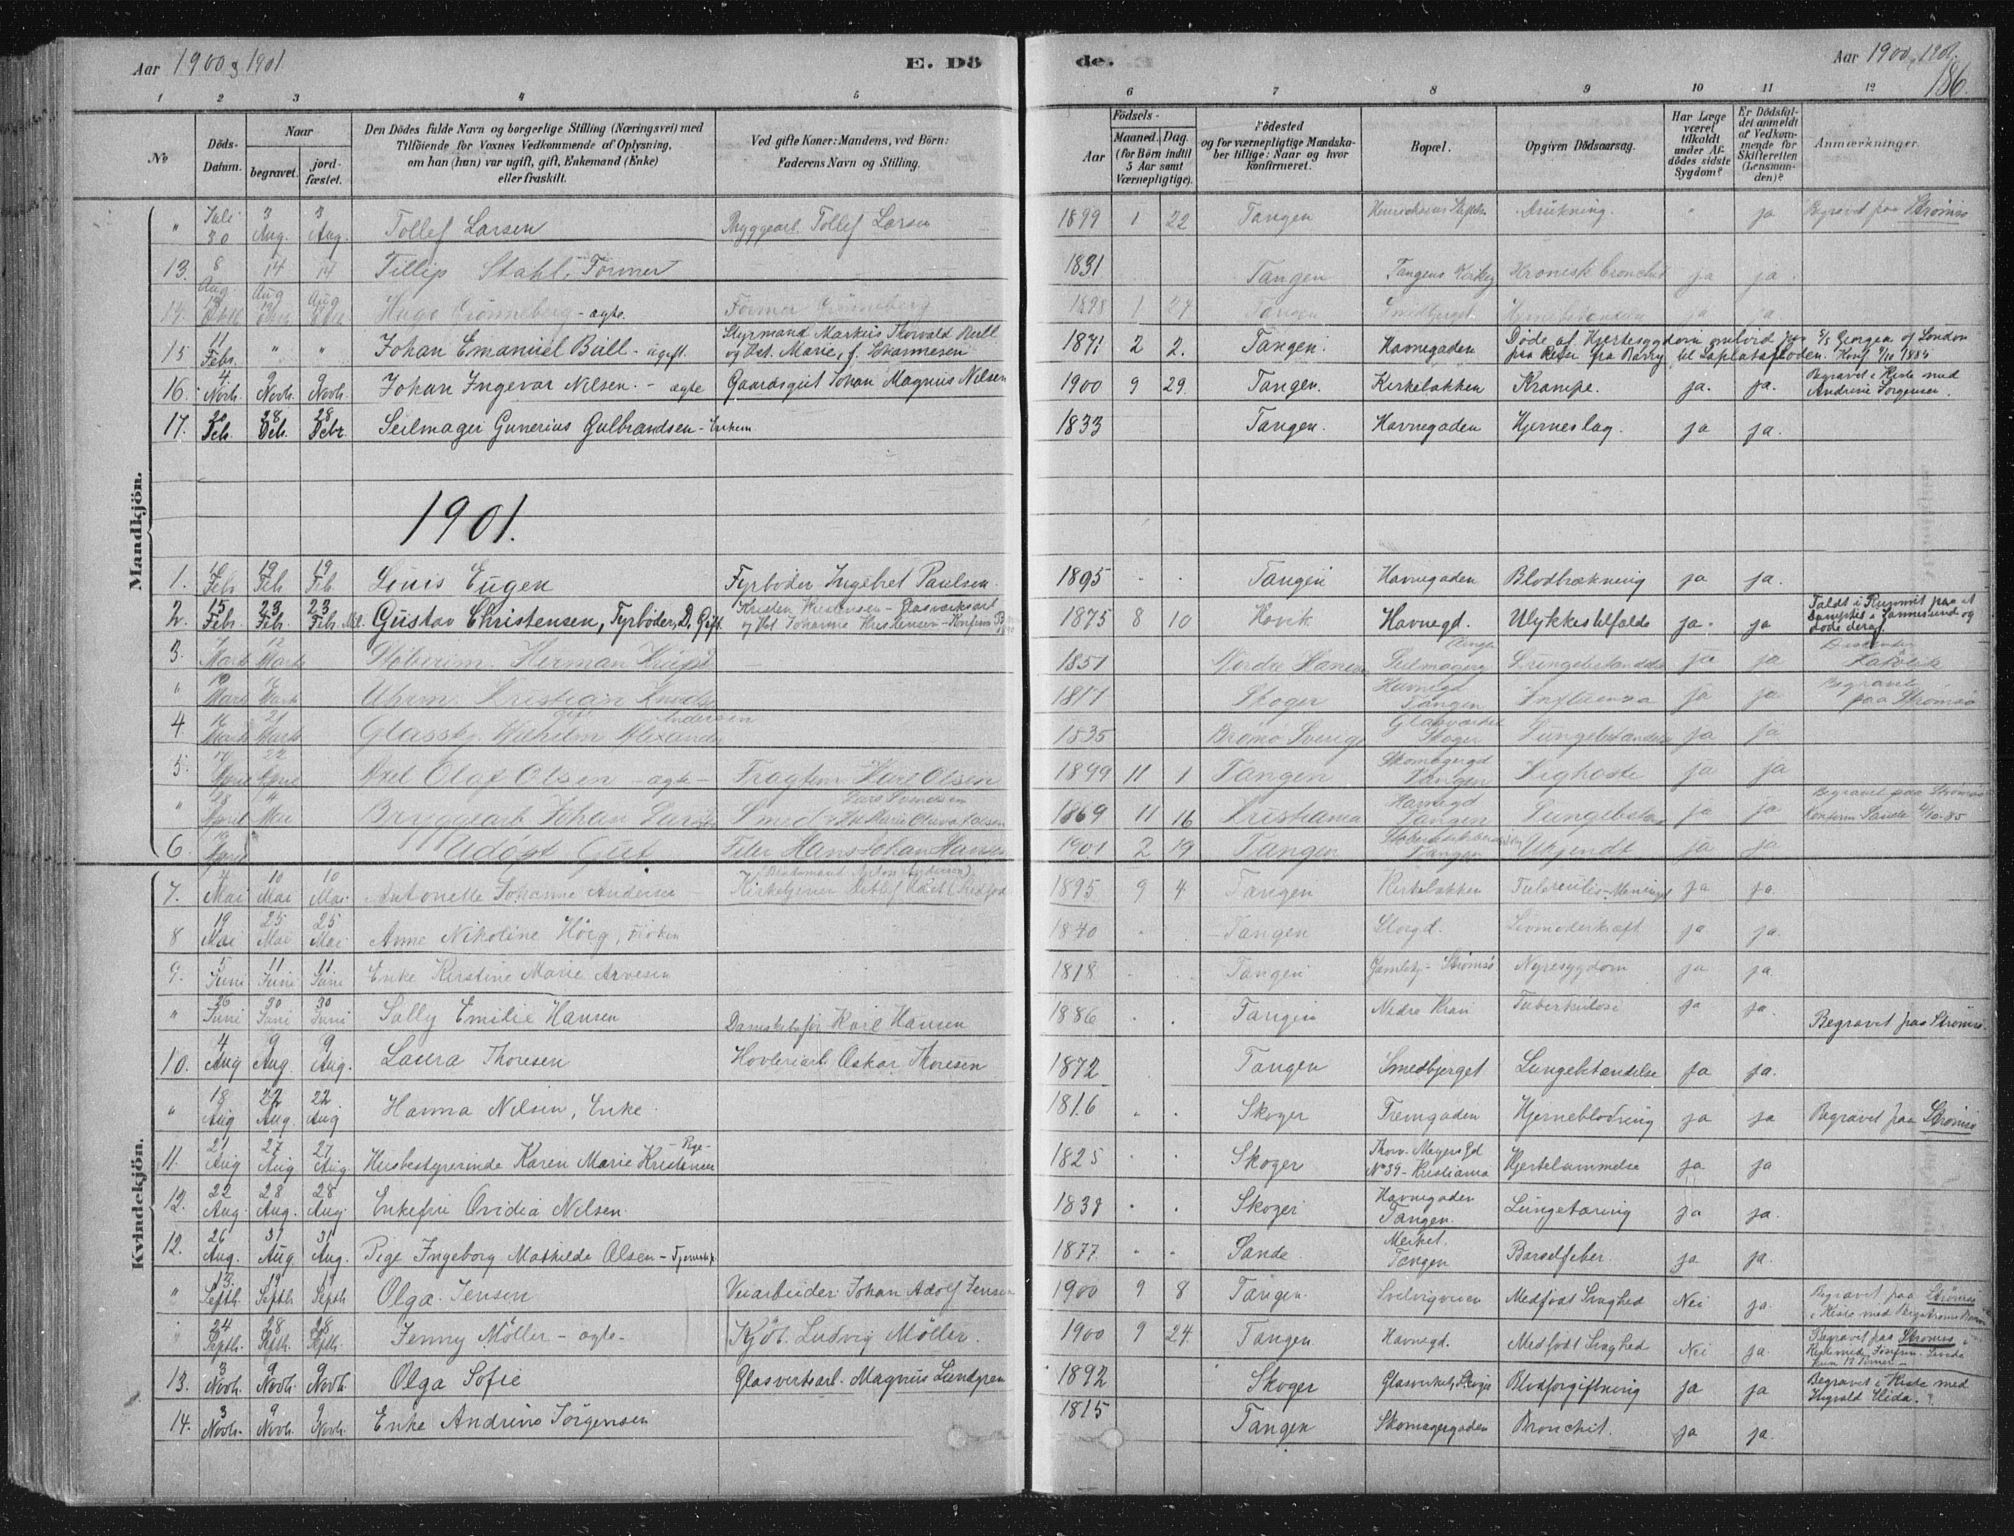 Aar 1900 & 1901
E. Dö
de.
Aar 1900, 1901.
186.
1 2 3 4 5 6 7 8 9 10 11 12
No
Döds-Datum.
Naar
begravet.
jord-fæstet.
Den Dödes fulde Navn og borgerlige Stilling (Næringsvei) med
Tilföiende for Voxnes Vedkommende af Oplysning,
om han (hun) var ugift, gift, Enkemand (Enke)
eller fraskilt.
Ved gifte Koner: Mandens, ved Börn:
Faderens Navn og Stilling.
Födsels-
Aar
Maaned. Dag.
(for Börn indtil
5 Aar samt
Værnepligtige).
Födested
og for værnepligtige Mandska-
ber tillige: Naar og hvor
konfirmeret.
Bopæl.
Opgiven Dödsaarsag.
Har Læge
været
tilkaldt
under Af-
dödes sidste
Sygdom?
Er Dödsfal-
det anmeldt
af Vedkom-
mende for
Skifteretten
(Lensman-
den)?
Anmærkninger.
Mandkjön.
" Juli 30 3 Aug. 3 Aug. Tollef Larsen Bryggearb. Tollef Larsen 1899 1 22 Tangen " ja Begravet paa Strømsø
13. 8 Aug. 14 Aug 14 Aug Fillip Stahl, Former 1831 Tangen Tangens Kirkeg Kronisk bronchit ja ja.
14. Hugo Grönneberg - ægte. Former Grönneberg 1898 1 24 Tangen Smedbjerget ja ja
15 11 Febr. " " Johan Emanuel Bull - ugift. Styrmand Markus Thorvald Bull
og Hst. Marie, f. Johannesen 1871 2 2. Tangen. Havnegaden Døde af Hjertesygdom ombord paa S/S Gengen af London
paa Reise fra Barry til Laplatafloden.
16. 4 Novb. 9 Novb. 9 Novb. Johan Ingevar Nilsen. - ægte Gaardsgut Johan Magnus Nilsen 1900 9 29. Tangen. Kirkeløkken Krampe. ja. ja. Begravet i Kiste med
Andrine Jørgensen.
17. 20 Deb. 28 Deb. 28 Debr Seilmager Gunerius Gulbrandsen - Enkem 1833 Tangen. Havnegaden Hjerneslag. ja ja.
1901.
1. Febr 19 Feb 19 Feb. Louis Eugen Fyrbøder Ingebret Paulsen. 1895 . . Tangen Havnegaden Blodbrækning ja ja.
2. 15 Febr. 23 Febr. 23 Febr. Gustav Christensen, Fyrbøder, D. Gift. Kristen Kristensen - Glasværksarb
og Hst Johanne Kristensen 1875 8 10 Hovik Havnegd. Ulykkestilfælde ja. ja Faldt i Rummet paa et
Dampskib i Sannesund og
døde deraf.
3. Marts 12 Marts Støberim. Herman 1851 Nordre Hansen Seilmagerg Lungebetændelse ja ja Dissenter
Katolik
" Marts Marts Uhrm. Kristian Knudsen 1817 Skoger Havnegd
Tangen Influensa ja ja Begravet
paa Strømsø
4 16 Marts 21 Marts Glassk. Wilhelm Alexander Andersen 1835 Bromo Sverige Glasværket
Skoger Lungebetændelse ja ja
5. April 22 April Axel Olaf Olsen - ægte - Fragtem Karl Olsen 1899 11 1 Tangen Skomagergd
Tangen Kighoste ja ja
" 28 April 4 Mai Bryggearb Johan Larsen Smed Lars Svendsen 1869 11 16 Kristiania Havnegd
Tangen Lungebetænd ja ja Begravet paa Strømsø
Konferm Sande 4/10-85
6. 19 April Udöpt Gut Filer Hans Johan Hansen 1901 2 19 Tangen Tangen Ukjendt ja ja
Kvindekjön.
7. 4 Mai 10 Mai 10 Mai. Antonette Johanne Andersen 1895 9 4 Tangen Kirkeløkken Tuberculös-Meningit ja ja.
8 19 Mai 25 Mai 25 Mai Anne Nikoline Hörg, Frøken 1840 . . Tangen Storgd. Livmoderkræft ja ja.
9. 5 Juni 11 Juni 11 Juni Enke Kirstine Marie Arvesen 1818 . . Tangen Gamlehj- Strømsø Nyresygdom ja ja.
" 26 Juni 30 Juni 30 Juni Sally Emilie Hansen Dampskibsfør Karl Hansen 1886 . . Tangen Nedre Kran Tuberkulose ja ja Begravet paa Strømsø
10. 4 Aug 9 Aug. 9 Aug. Laura Thoresen Hovleriarb. Oskar Thoresen 1872 . Tangen Smedbjerget Lungebetændelse ja ja.
" 18 Aug 22 Aug. 22 Aug Hanna Nilsen, Enke. 1816 . . Skoger Fremgaden Hjerneblödning ja ja Begravet paa Strømsø
11. 21 Aug 27 Aug. 27 Aug. Husbestyrerinde Karen Marie Kristensen - Pige - 1825 . . Skoger Thorv. Meyers Gd
No 39 - Kristiania Hjertelammelse ja ja
12. 22 Aug. 28 Aug. 28 Aug. Enkefru Ovidia Nelsen. 1838 . . Skoger Havnegaden
Tangen. Lungetæring ja ja.
12. 26 Aug. 31 Aug 31 Aug. Pige Ingeborg Mathilde Olsen - 1877. " " Sande. Merket.
Tangen Barselfeber ja ja.
" 13. Septb. 19 Septb 19 Septb Olga Jensen Veiarbeider Johan Adolf Jensen 1900 9 8 Tangen. Svelvigveien Medfødt Svaghed Nei ja. Begravet paa Strømsø
i Kiste med
" 24 Septb. 28 Septb. 28 Septb. Jenny Möller - ægte - Kjöb. Ludvig Möller. 1900 9 24. Tangen Havnegd. Medfødt Svaghed Nei ja. Begravet paa Strømsø i
13. 3 Novb. 9 Novb. 9 Novb Olga Sofie Glasverksarb. Magnus Lundgren 1892 Skoger Glasværket, Skoger Blodforgiftning ja ja Begravet i Kiste med
14. 3 Novb. 9 Novb. 9 Novb. Enke Andrine Jörgensen 1815 Tangen Skomagergaden Bronchit. ja ja.